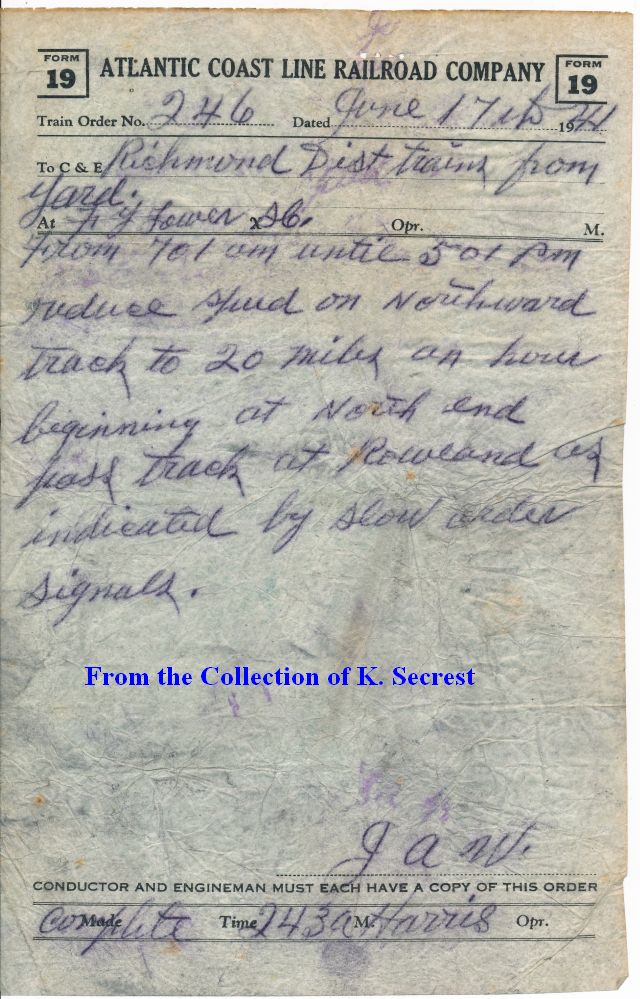 FORM 19 ATLANTIC COAST LINE RAILROAD COMPANY FORM 19
Train Order No. 246 Dated June 17th 1944
To C & E Richmond Dist trains from
yard.
At Fy Tower X SC. Opr. M.
From 701 am until 501 pm
reduce speed on Northward
track to 20 miles an hour
beginning at North end
pass track at Rowland as
indicated by slow order
signals.
From the Collection of K. Secrest
J A W.
CONDUCTOR AND ENGINEMAN MUST EACH HAVE A COPY OF THIS ORDER
Made complete Time 243a M. Harris Opr.